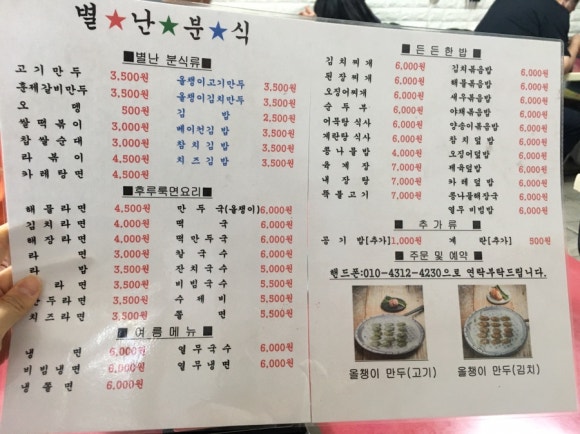 별★난★분★식
■별난 분식류■
고기만두 3,500원 올챙이고기만두 3,500원
훈제갈비만두 3,500원 올챙이김치만두 3,500원
오 뎅 500원 김 밥 2,500원
쌀떡볶이 3,500원 베이컨김밥 3,500원
참쌀순대 3,000원 참치김밥 3,500원
라 볶 이 4,500원 치즈김밥 3,500원
카레탕면 4,500원
■후루룩면요리■
해물라면 4,500원 만두국(올챙이) 6,000원
김치라면 4,000원 떡 국 6,000원
해장라면 4,000원 떡만두국 6,000원
라 면 3,000원 칼 국 수 6,000원
라 밥 3,500원 잔치국수 5,000원
라면 3,500원 비빔국수 5,500원
만두라면 3,500원 수 제 비 5,500원
치즈라면 3,500원 쫄 면 5,500원
■여름메뉴■
냉 면 6,000원 열무국수 6,000원
비빔냉면 6,000원 열무냉면 6,000원
냉 쫄 면 6,000원
■든든한밥■
김치찌개 6,000원 김치볶음밥 6,000원
된장찌개 6,000원 해물볶음밥 6,000원
오징어찌개 6,000원 새우볶음밥 6,000원
순 두 부 6,000원 야채볶음밥 6,000원
어묵탕 식사 6,000원 양송이볶음밥 6,000원
계란탕 식사 6,000원 참치덮밥 6,000원
콩나물밥 6,000원 오징어덮밥 6,000원
육 계 장 7,000원 제육덮밥 6,000원
내 장 탕 7,000원 카레덮밥 6,000원
뚝불고기 7,000원 콩나물해장국 6,000원
열무비빔밥 6,000원
■추가류■
공기밥[추가] 1,000원 계 란[추가] 500원
■주문 및 예약■
핸드폰:010-4312-4230으로 연락부탁드립니다.
올챙이 만두(고기) 올챙이 만두(김치)